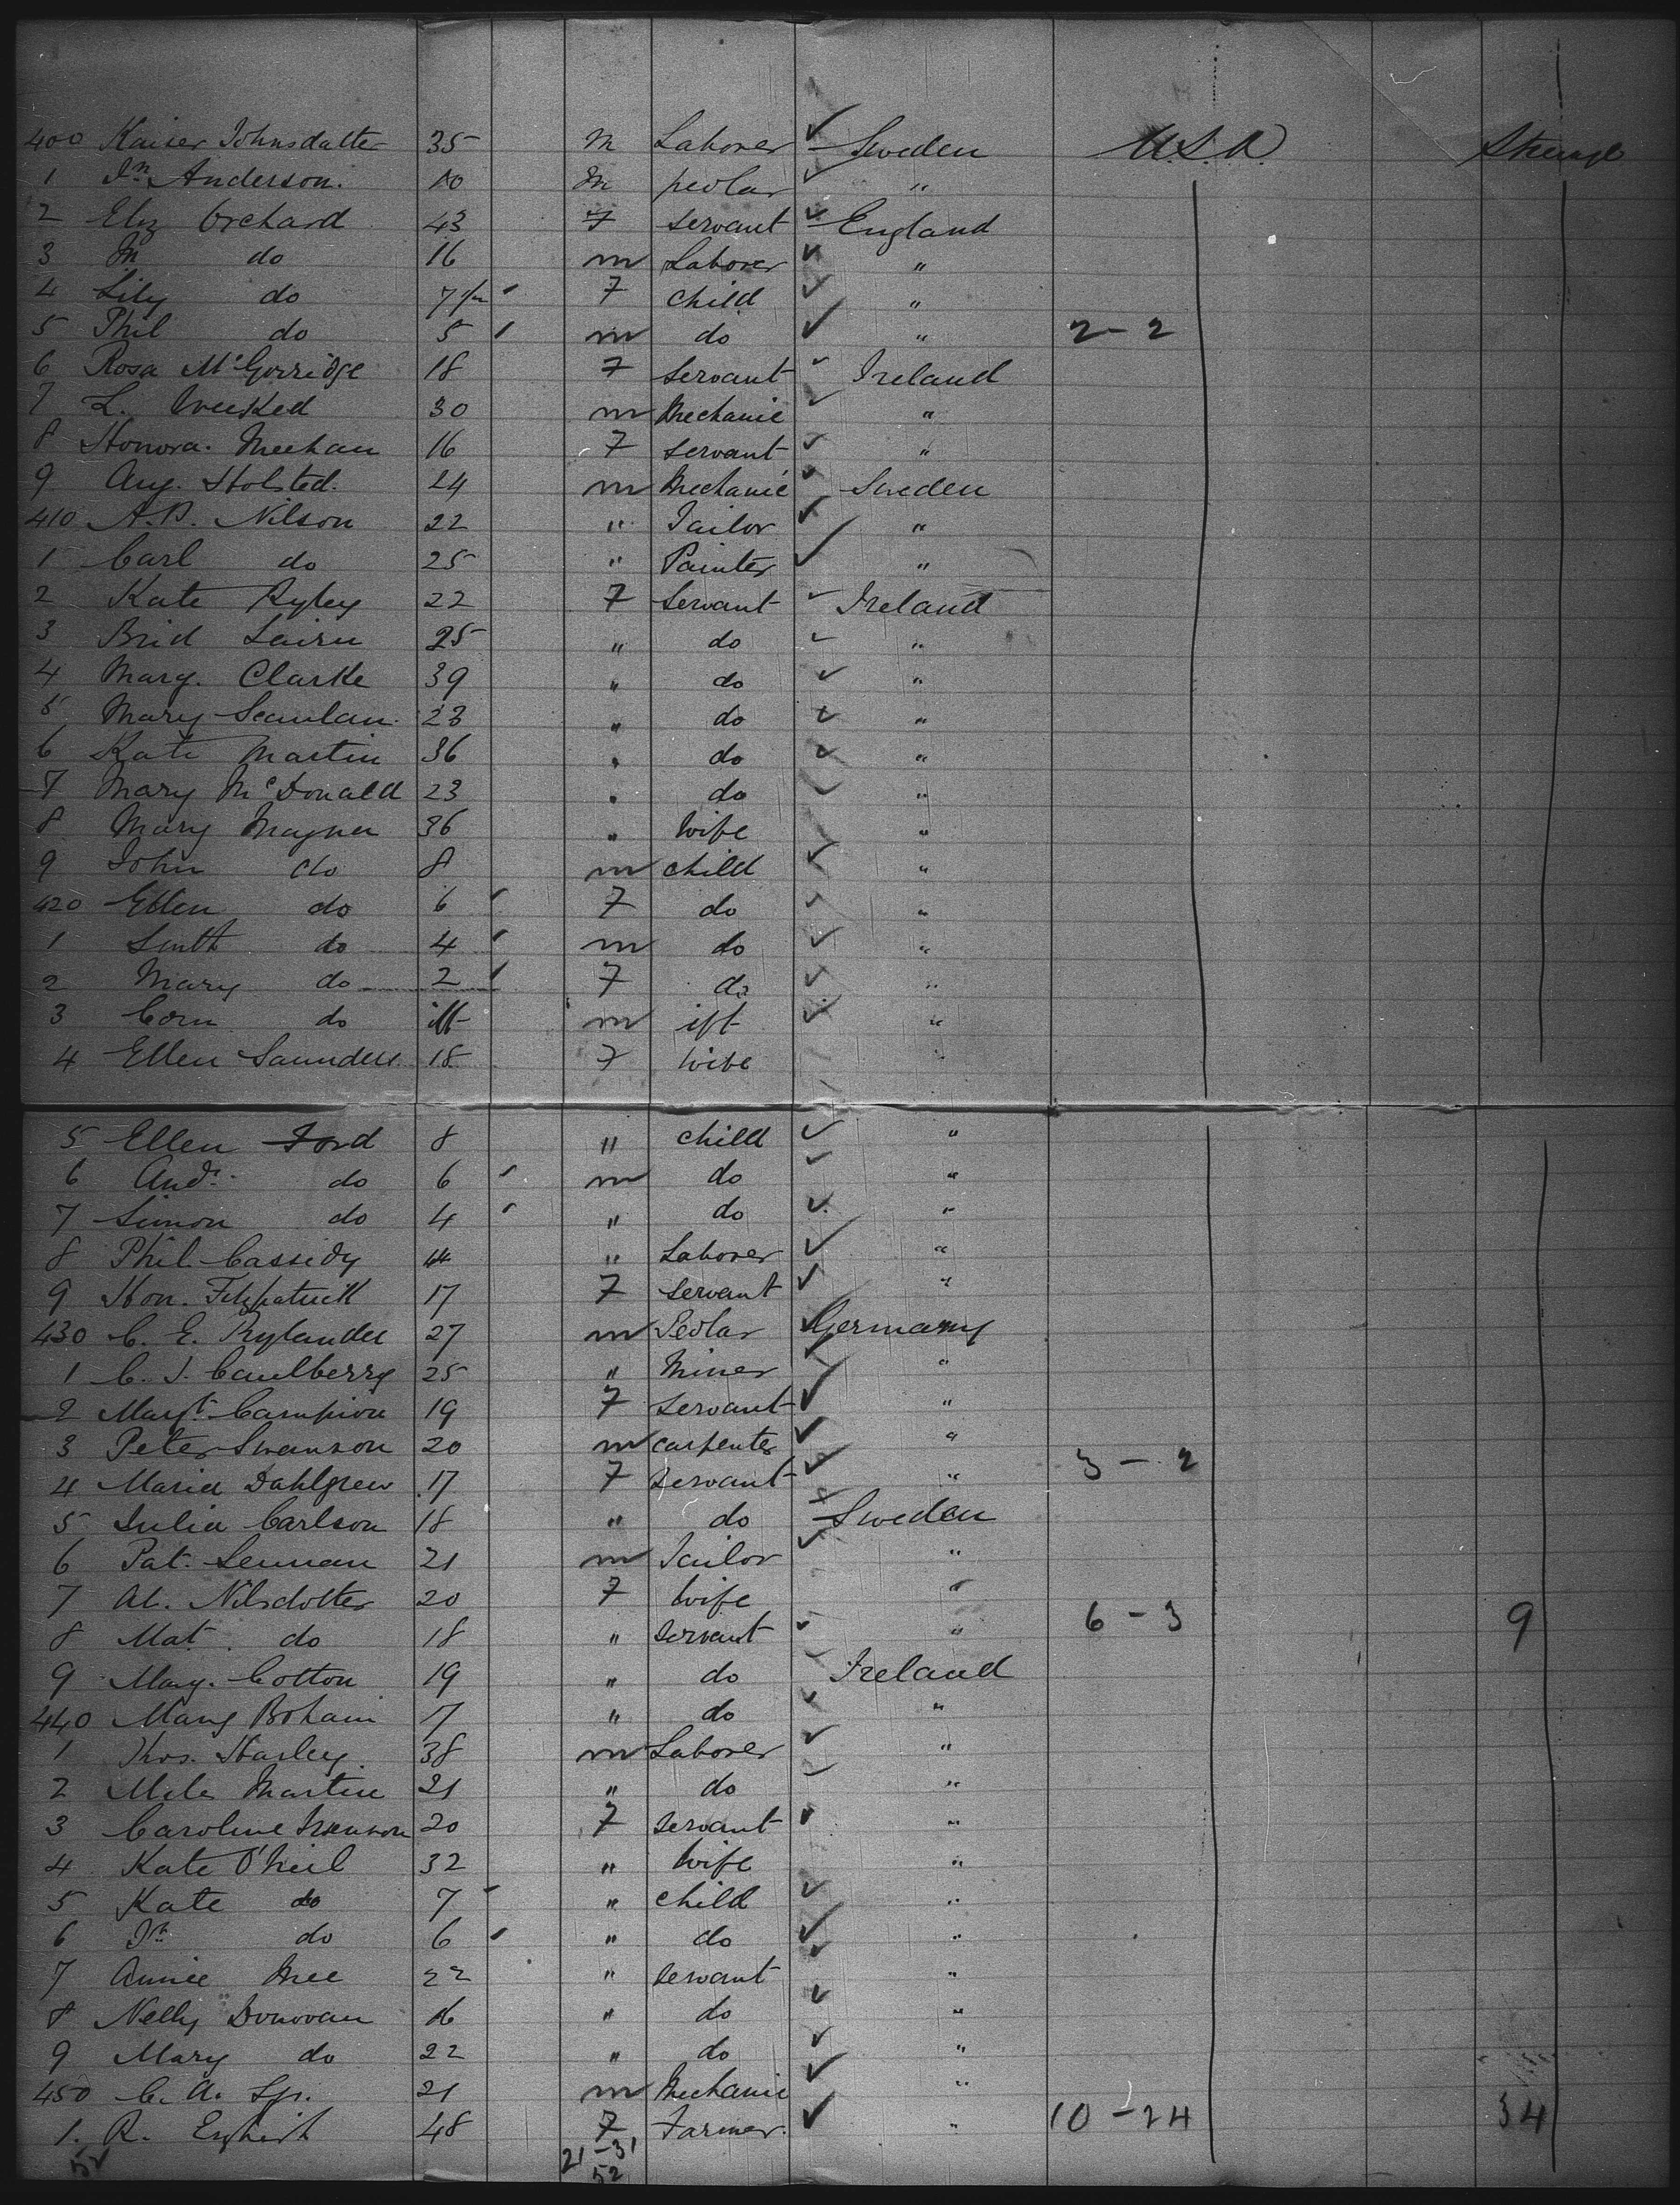 400 Kaiser Johnsdatter 35 m Laborer Sweden U.S.A. Steerage
1 Jn Anderson. 10 m pedlar "
2 Eliz Orchard 43 F servant England
3 do 16 m Laborer "
4 Lily do 7 F child "
5 Phil do 5 m do " 2 - 2
6 Rosa McGorridge 18 F servant Ireland
7 L. 30 m Mechanic "
8 Honora. Meehan 16 F servant "
9 Aug. Holsted. 24 m Mechanic Sweden
410 A.P. Nilson 22 " Tailor "
1 Carl do 25 " Painter "
2 Kate Ryley 22 F Servant Ireland
3 Brid 25 " do "
4 Marg. Clarke 39 " do "
5 Mary Scanlan. 23 " do "
6 Kate Martin 36 " do "
7 Mary McDonald 23 " do "
8 Mary Magner 36 " wife "
9 John do 8 m child "
420 Ellen do 6 F do "
1 do 4 m do "
2 Mary do 2 F do "
3 Corn do ift m ift "
4 Ellen Saunders 18 F wife "
5 Ellen Ford 8 " child "
6 Andw do 6 m do "
7 Simon do 4 " do "
8 Phil Cassidy 44 " Laborer "
9 Hon. Fitzpatrick 17 F servant "
430 C. E. Rylander 27 m Pedlar Germany
1 C. J. Caulberry 25 " Miner "
2 Margt Campion 19 F servant "
3 Peter Swanson 20 m carpenter "
4 Maria Dahlgren 17 F servant " 3 - 2
5 Julia Carlson 18 " do Sweden
6 Pat. Lennan 21 m Tailor "
7 Al. Nilsdotter 20 F wife "
8 Mat. do 18 " servant " 6 - 3 9
9 Marg. Cotton 19 " do Ireland
440 Mary Bohain 17 " do "
1 Thos. Harley 38 m Laborer "
2 Martin 21 " do "
3 Caroline Swanson 20 F servant "
4 Kate O'Neil 32 " wife "
5 Kate do 7 " child "
6 do 6 " do "
7 Annie Mee 22 " servant "
8 Nelly Donovan 16 " do "
9 Mary do 22 " do "
450 C. A. 21 m Mechanic "
1. R. 48 F Farmer. " 10 - 24 34
52 21 - 31
52